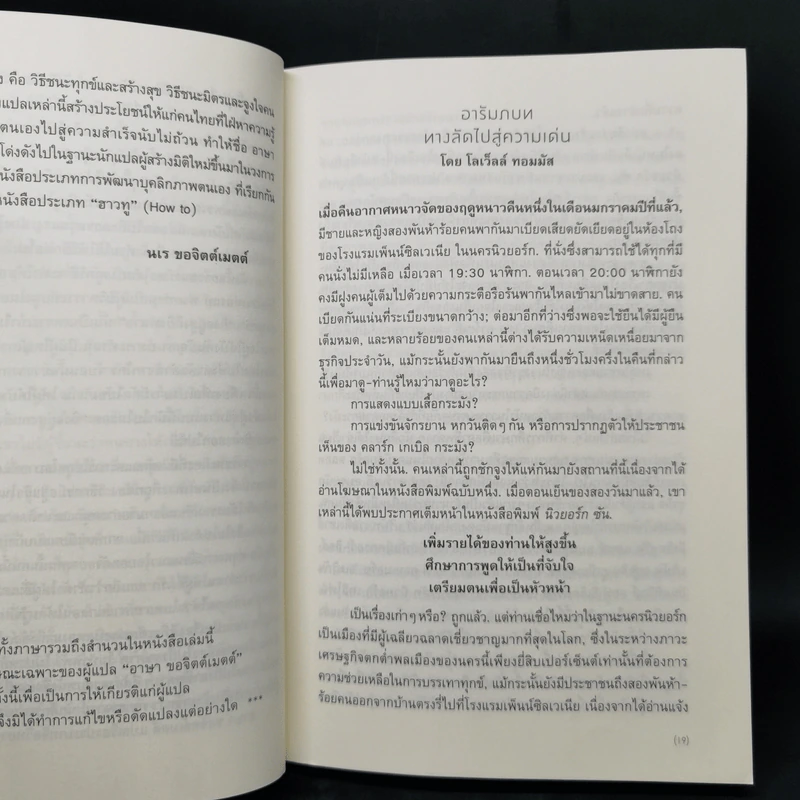 คือ วิธีชนะทุกข์และสร้างสุข วิธีชนะมิตรและจูงใจคน
แปลเหล่านี้สร้างประโยชน์ให้แก่คนไทยที่ใฝ่หาความรู้
ตนเองไปสู่ความสำเร็จนับไม่ถ้วน ทำให้ชื่อ อาษา
โด่งดังไปในฐานะนักแปลผู้สร้างมิติใหม่ขึ้นมาในวงการ
หนังสือประเภทการพัฒนาบุคลิกภาพตนเอง ที่เรียกกัน
หนังสือประเภท “ฮาวทู” (How to)
นเร ขอจิตต์เมตต์
ทั้งภาษารวมถึงสำนวนในหนังสือเล่มนี้
ษณะเฉพาะของผู้แปล “อาษา ขอจิตต์เมตต์”
ทั้งนี้เพื่อเป็นการให้เกียรติแก่ผู้แปล
จึงมิได้ทำการแก้ไขหรือดัดแปลงแต่อย่างใด ***
อารัมภบท
ทางลัดไปสู่ความเด่น
โดย โลเว็ลล์ ทอมมัส
เมื่อคืนอากาศหนาวจัดของฤดูหนาวคืนหนึ่งในเดือนมกราคมปีที่แล้ว,
มีชายและหญิงสองพันห้าร้อยคนพากันมาเบียดเสียดยัดเยียดอยู่ในห้องโถง
ของโรงแรมเพ็นน์ซิลเวเนีย ในนครนิวยอร์ก. ที่นั่งซึ่งสามารถใช้ได้ทุกที่มี
คนนั่งไม่มีเหลือ เมื่อเวลา 19:30 นาฬิกา. ตอนเวลา 20:00 นาฬิกายัง
คงมีฝูงคนผู้เต็มไปด้วยความกระตือรือร้นพากันไหลเข้ามาไม่ขาดสาย. คน
เบียดกันแน่นที่ระเบียงขนาดกว้าง; ต่อมาอีกที่ว่างซึ่งพอจะใช้ยืนได้มีผู้ยืน
เต็มหมด, และหลายร้อยของคนเหล่านี้ต่างได้รับความเหน็ดเหนื่อยมาจาก
ธุรกิจประจำวัน, แม้กระนั้นยังพากันมายืนถึงหนึ่งชั่วโมงครึ่งในคืนที่กล่าว
นี้เพื่อมาดู-ท่านรู้ไหมว่ามาดูอะไร?
การแสดงแบบเสื้อกระมัง?
การแข่งขันจักรยาน หกวันติดๆ กัน หรือการปรากฏตัวให้ประชาชน
เห็นของ คลาร์ก เกเบิล กระมัง?
ไม่ใช่ทั้งนั้น. คนเหล่านี้ถูกชักจูงให้แห่กันมายังสถานที่นี้เนื่องจากได้
อ่านโฆษณาในหนังสือพิมพ์ฉบับหนึ่ง. เมื่อตอนเย็นของสองวันมาแล้ว, เขา
เหล่านี้ได้พบประกาศเต็มหน้าในหนังสือพิมพ์ นิวยอร์ก ซัน.
เพิ่มรายได้ของท่านให้สูงขึ้น
ศึกษาการพูดให้เป็นที่จับใจ
เตรียมตนเพื่อเป็นหัวหน้า
เป็นเรื่องเก่าๆ หรือ? ถูกแล้ว. แต่ท่านเชื่อไหมว่าในฐานะนครนิวยอร์ก
เป็นเมืองที่มีผู้เฉลียวฉลาดเชี่ยวชาญมากที่สุดในโลก, ซึ่งในระหว่างภาวะ
เศรษฐกิจตกต่ำพลเมืองของนครนี้เพียงยี่สิบเปอร์เซ็นต์เท่านั้นที่ต้องการ
ความช่วยเหลือในการบรรเทาทุกข์, แม้กระนั้นยังมีประชาชนถึงสองพันห้า-
ร้อยคนออกจากบ้านตรงรี่ไปที่โรงแรมเพ็นน์ซิลเวเนีย เนื่องจากได้อ่านแจ้ง
(19)